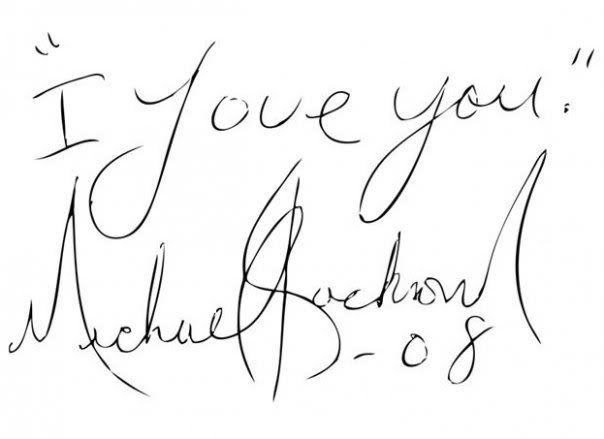 "I Love you."
Michael Jackson
-08